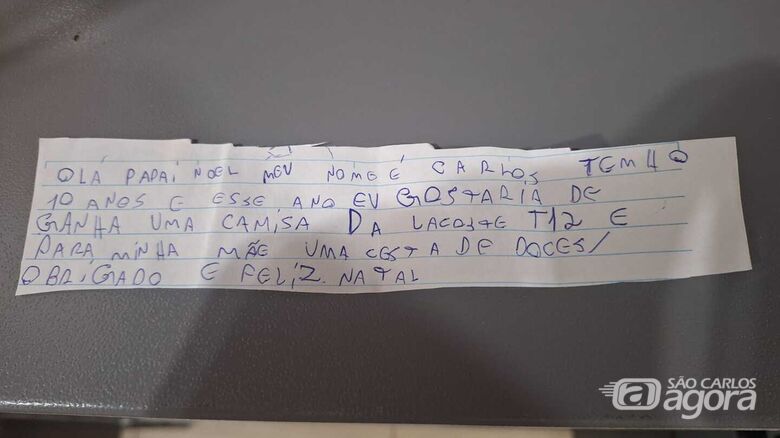 OLÁ PAPAI NOEL MEU NOME É CARLOS TEMHO
10 ANOS E ESSE ANO EU GOSTARIA DE
GANHA UMA CAMISA DA LACOSTE T12 E
PARA MINHA MÃE UMA CESTA DE DOCES/
OBRIGADO E FELIZ NATAL
SÃO CARLOS
agora